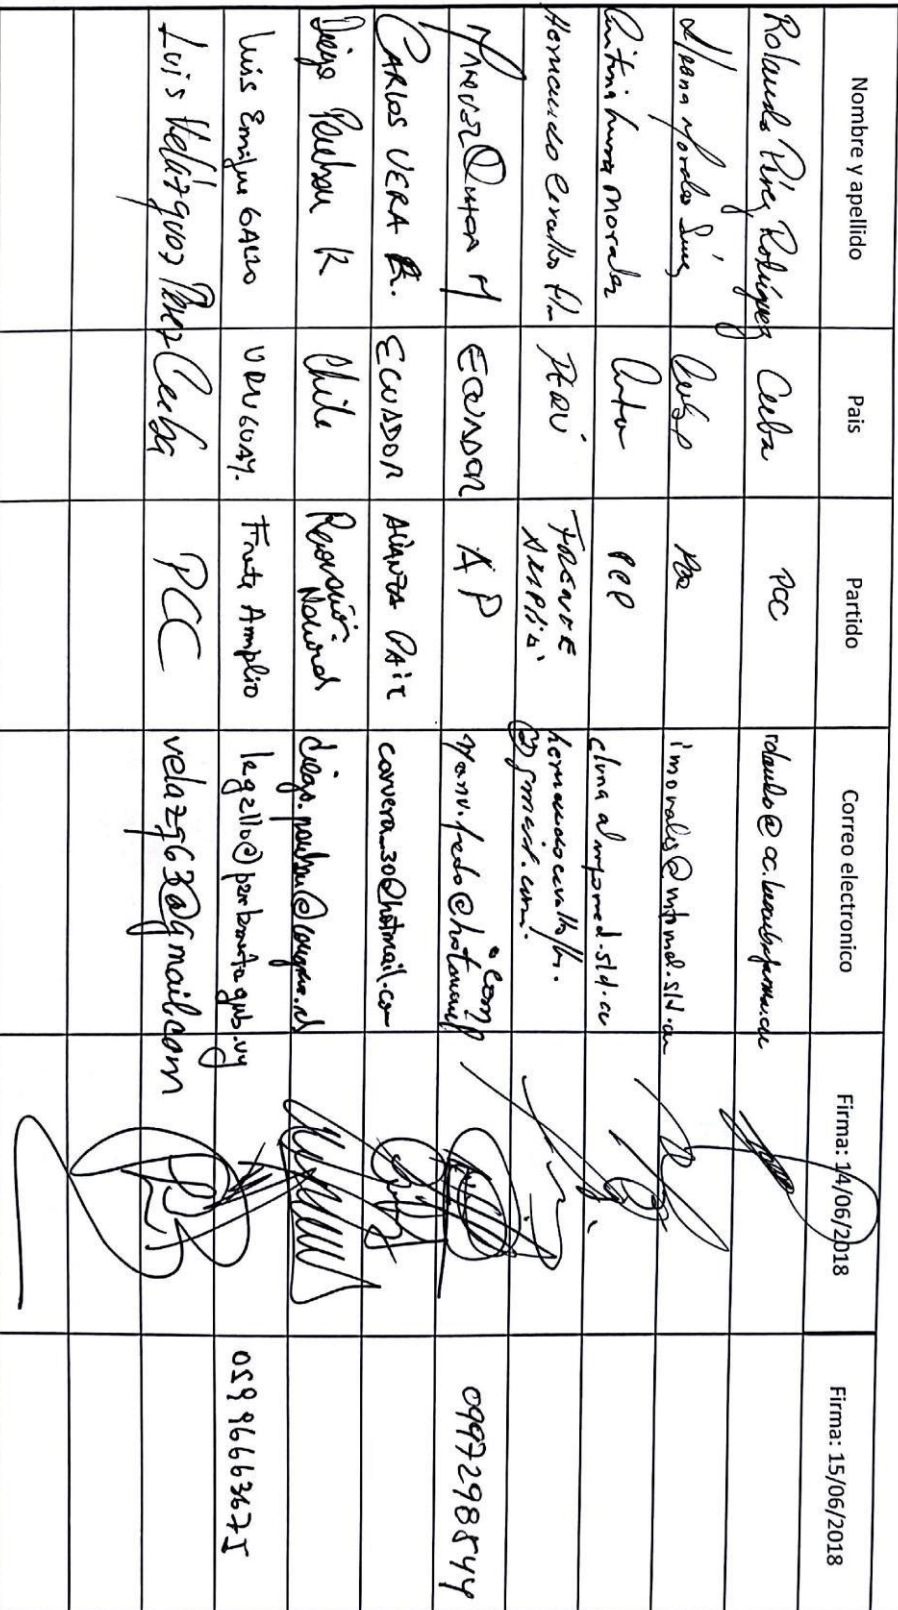 Nombre y apellido País Partido Correo electronico Firma: 14/06/2018 Firma: 15/06/2018
Rolando Pérez Rodríguez Cuba PCC
Morales Cuba imorales@infomed.sld.cu
Cristina Luna Morales PCC cluna@infomed.sld.cu
Hernando Cevallos PERÚ FRENTE AMPLIO hernandocevallosf.
@gmail.com.
ECUADOR AP 0997298544
CARLOS VERA R. ECUADOR Alianza PAIS carvera_30@hotmail.com
Diego Paulsen K Chile Renovación Nacional diego.paulsen@congreso.cl
Luis Enrique GALLO URUGUAY. Frente Amplio legallo@parlamento.gub.uy
Luis Velázquez Pérez Cuba PCC velazq63@gmail.com